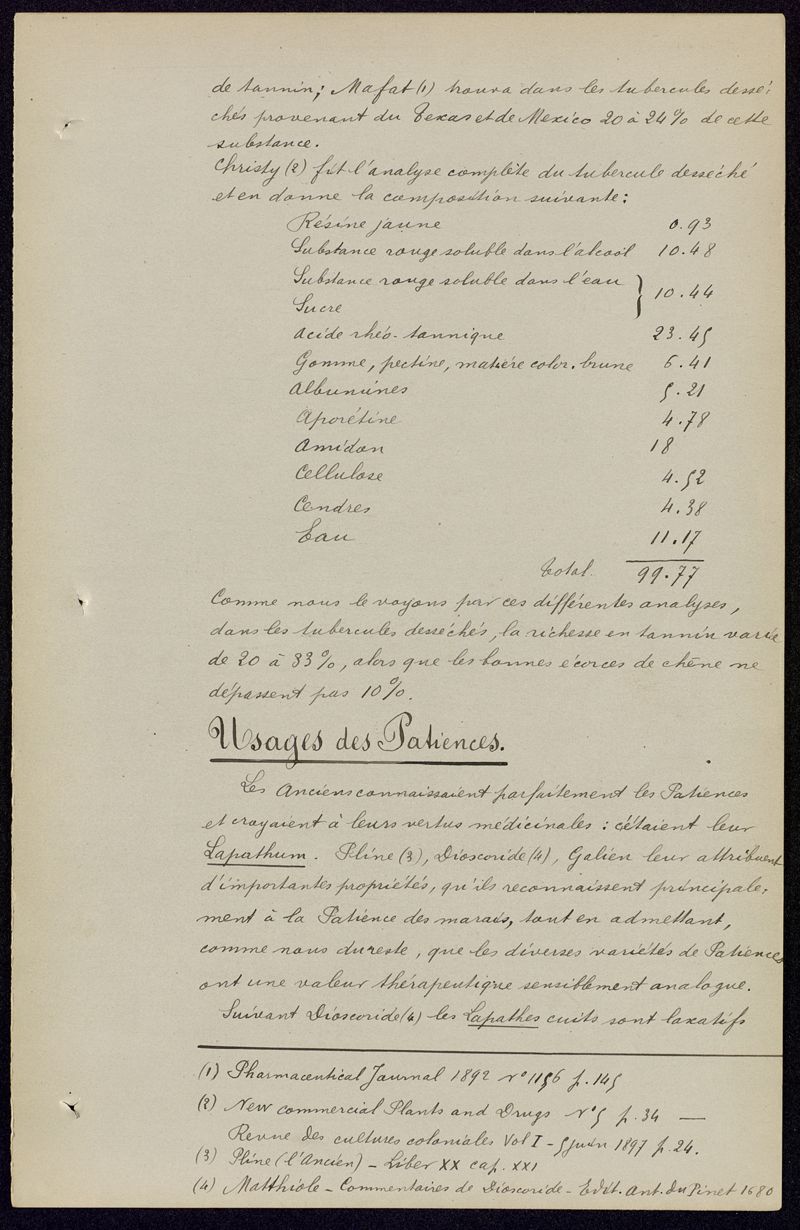 de tannin; Mafat (1) trouva dans les tubercules dessé-
chés provenant du Texas et de Mexico 20 à 24% de cette
substance.
Christy (2) fit l'analyse complète du tubercule desséché
et en donne la composition suivante:
Résine jaune 0.93
Substance rouge soluble dans l'alcool 10.48
Substance rouge soluble dans l'eau } 10.44
Sucre
Acide rhéo-tannique 23.45
Gomme, pectine, matière color. brune 6.41
Albumines 5.21
Aporétine 4.78
Amidon 18
Cellulose 4.52
Cendres 4.38
Eau 11.17
Total. 99.77
Comme nous le voyons par ces différentes analyses,
dans les tubercules desséchés, la richesse en tannin varie
de 20 à 33%, alors que les bonnes écorces de chêne ne
dépassent pas 10%.
Usages des Patiences.
Les Anciens connaissaient parfaitement les Patiences
et croyaient à leurs vertus médicinales: c'étaient leur
Lapathum. Pline (3), Dioscoride (4), Galien leur attribuent
d'importantes propriétés, qu'ils reconnaissent principale-
ment à la Patience des marais, tout en admettant,
comme nous du reste, que les diverses variétés de Patiences
ont une valeur thérapeutique sensiblement analogue.
Suivant Dioscoride (4) les Lapathes cuits sont laxatifs
(1) Pharmaceutical Journal 1892 N° 1156 p. 145
(2) New commercial Plants and Drugs N° 5 p. 34 —
Revue des cultures coloniales Vol I - 5 juin 1897 p. 24.
(3) Pline (l'Ancien) - Liber XX cap. XXI
(4) Matthiole - Commentaires de Dioscoride - Edit. Ant. du Pinet 1680